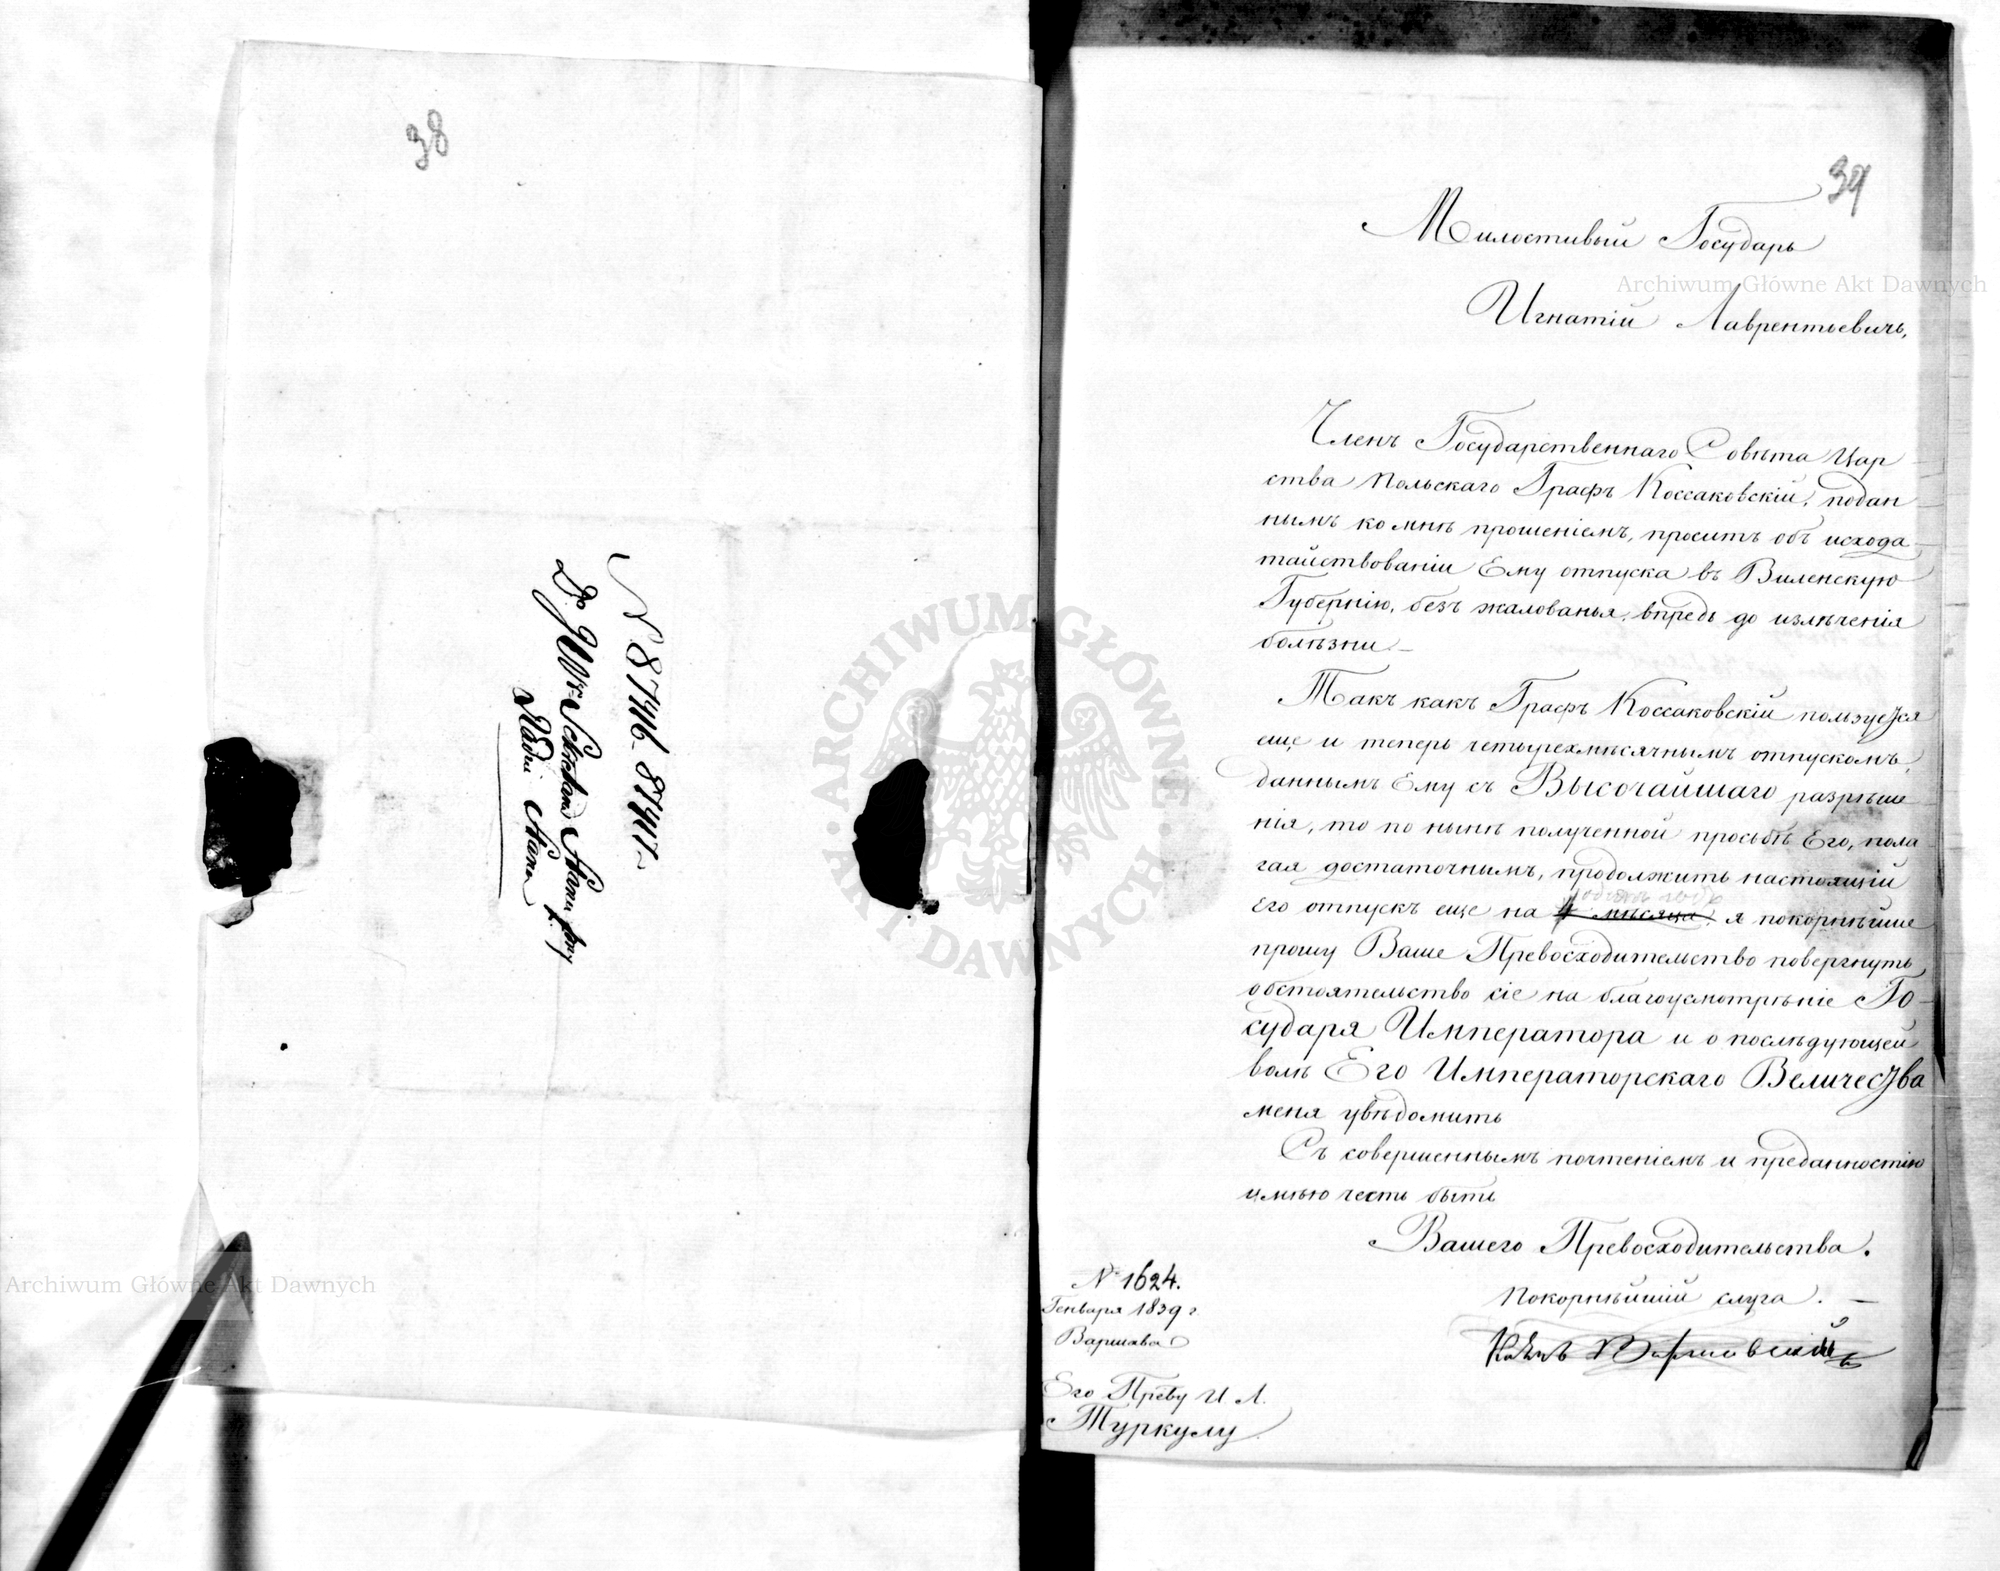 38
№ 87416-87417
Do JW Sekretarza Stanu przy
Radzie Stanu
39
Милостивый Государь
Игнатій Лаврентьевичь,
Членъ Государственнаго Совѣта Цар
ства Польскаго Графъ Коссаковскій, подан
нымъ ко мнѣ прошеніемъ, проситъ объ исхода
тайствованіи Ему отпуска въ Виленскую
Губернію, безъ жалованья, впредь до излѣченія
болѣзни
Такъ какъ Графъ Коссаковскій пользуется
еще и теперь четырехмѣсячнымъ отпускомъ,
даннымъ Ему съ Высочайшаго разрѣше
нія, то по нынѣ полученной просьбѣ Его, пола
гая достаточнымъ, продолжить настоящій
Его отпускъ еще на 4 мѣсяца, я покорнѣйше
прошу Ваше Превосходительство повергнуть
обстоятельство сіе на благоусмотрѣніе Го-
сударя Императора и о послѣдующей
волѣ Его Императорскаго Величества
меня увѣдомить
Съ совершеннымъ почтеніемъ и преданностію
имѣю честь быть
Вашего Превосходительства.
Покорнѣйшій слуга.
Князь Варшавскій
№ 1624.
Генваря 1839 г.
Варшава
Его Превₒву И Л.
Туркулу
Archiwum Główne Akt Dawnych
Archiwum Główne Akt Dawnych
ARCHIWUM GŁÓWNE AKT DAWNYCH